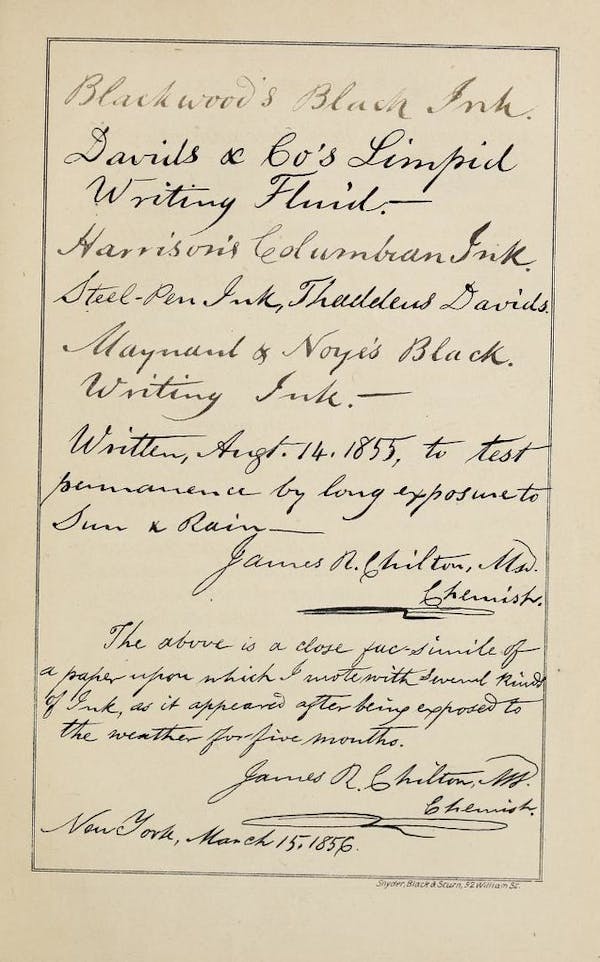 Blackwood's Black Ink.
Davids & Co's Limpid
Writing Fluid.—
Harrison's Columbian Ink.
Steel-Pen Ink, Thaddeus Davids.
Maynard & Noye's Black.
Writing Ink.—
Written, Augt. 14. 1855, to test
permanence by long exposure to
Sun & Rain—
James R. Chilton, M.D.
Chemist.
The above is a close fac-simile of
a paper upon which I wrote with several kinds
of Ink, as it appeared after being exposed to
the weather for five months.
James R. Chilton, M.D.
Chemist.
New York, March 15. 1856.
Snyder, Black & Sturn, 92 William St.